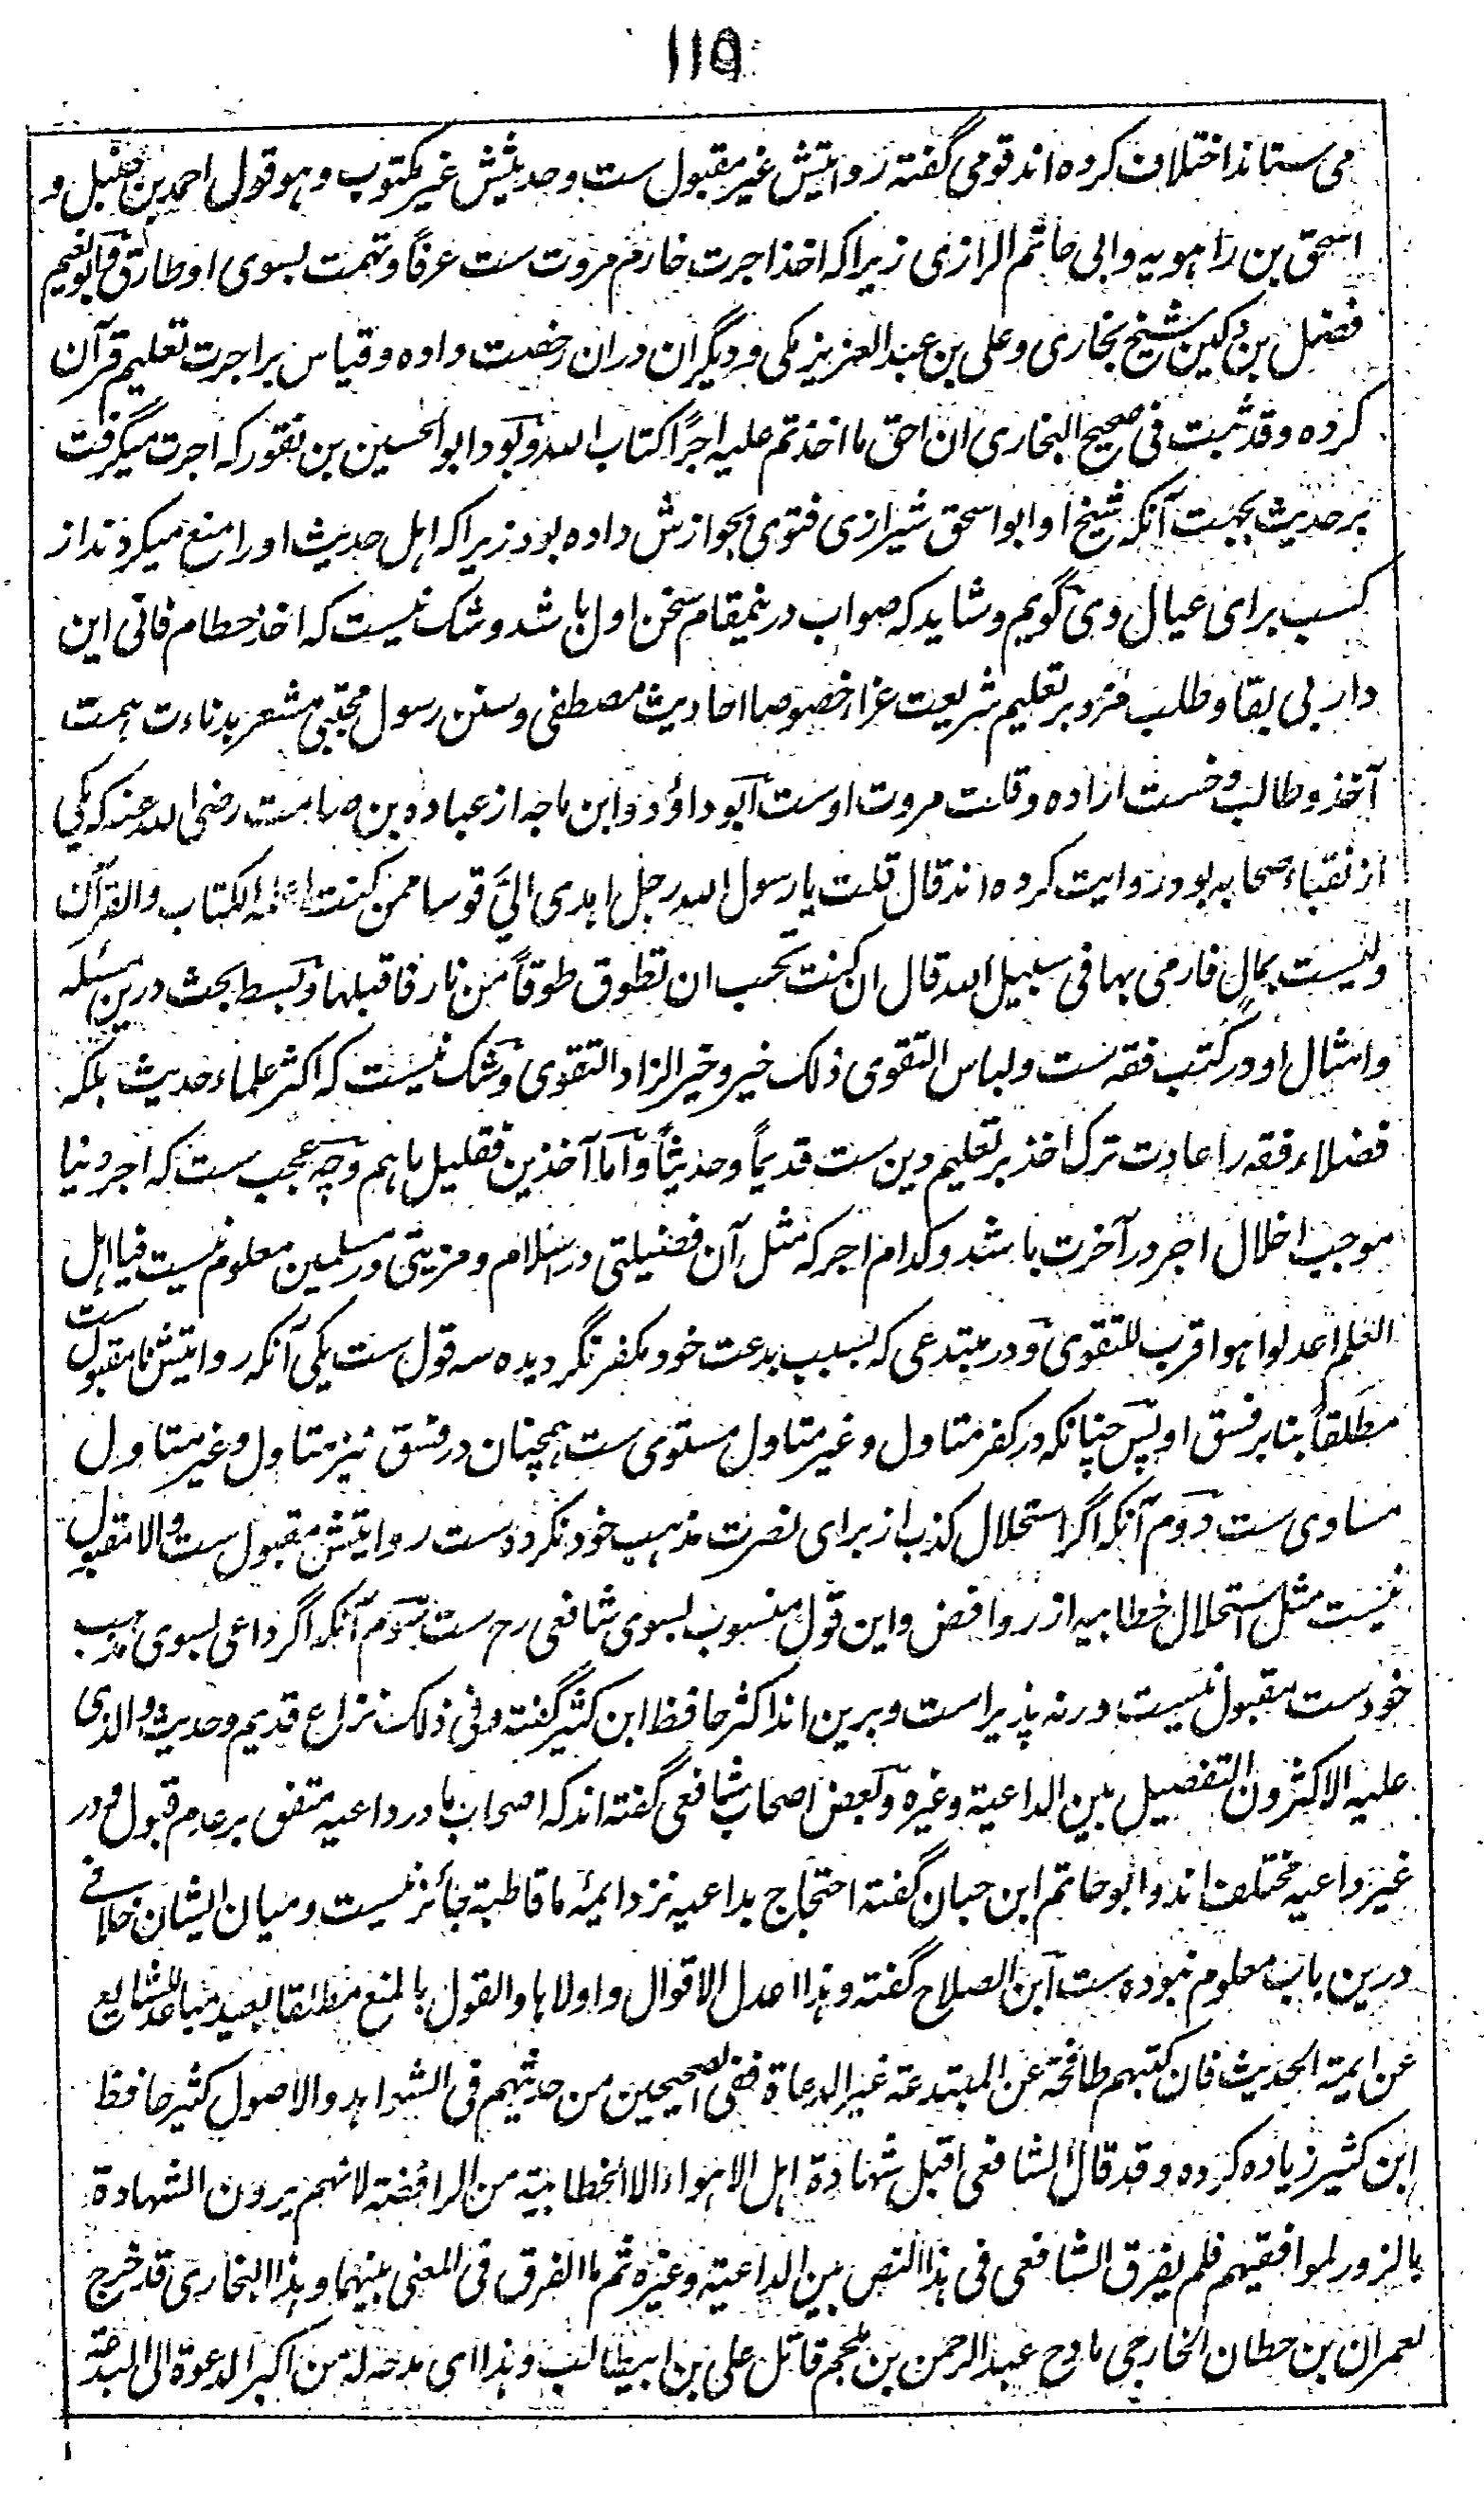 ۱۱۵
می ستانداختلاف کرده اند قومی گفته روایتش غیر مقبول ست و حدیثش غیر مکتوب و هو قول احمد بن حنبل و
اسحق بن راهویه و ابی حاتم الرازی زیراکه اخذ اجرت خارم مروت ست عرفاً و تهمت بسوی او طارق و ابو نعیم
فضل بن دکین شیخ بخاری و علی بن عبد العزیز مکی و دیگران دران رخصت داده و قیاس بر اجرت تعلیم قرآن
کرده و قد ثبت فی صحیح البخاری ان احق ما اخذتم علیه اجراً کتاب الله و بود ابو الحسین بن نقور که اجرت میگرفت
بر حدیث بجهت آنکه شیخ او ابو اسحق شیرازی فتوی بجوازش داده بود زیراکه اهل حدیث او را منع میکردند از
کسب برای عیال وی گویم و شاید که صواب درینمقام سخن اول باشد و شک نیست که اخذ حطام فانی این
دار بی بقا و طلب مزد بر تعلیم شریعت غراء خصوصا احادیث مصطفی و سنن رسول مجتبی مشعر بدناءت همت
آخذ و طالب و خست اراده و قلت مروت اوست ابو داؤد و ابن ماجه از عباده بن صامت رضی الله عنه که یکی
از نقباء صحابه بود روایت کرده اند قال قلت یا رسول الله رجل اهدی الیّ قوسا ممن کنت اعلمه الکتاب والقرآن
ولیست بمال فارمی بها فی سبیل الله قال ان کنت تحب ان تطوق طوقاً من نار فاقبلها و بسط بحث درین مسئله
و امثال او در کتب فقه ست و لباس التقوی ذلک خیر و خیر الزاد التقوی و شک نیست که اکثر علماء حدیث بلکه
فضلاء فقه را عادت ترک اخذ بر تعلیم دین ست قدیماً و حدیثاً و اما آخذین فقلیل ما هم و چه عجب ست که اجر دنیا
موجب اخلال اجر در آخرت باشد و کدام اجر که مثل آن فضیلتی در اسلام و مزیتی در مسلمین معلوم نیست فیا اهل
العلم اعدلوا هو اقرب للتقوی و در مبتدعی که بسبب بدعت خود مکفر نگردیده سه قول ست یکی آنکه روایتش نامقبول ست
مطلقاً بنا بر فسق او پس چنانکه در کفر متاول و غیر متاول مستوی ست همچنان در فسق نیز متاول و غیر متاول
مساوی ست دوم آنکه اگر استحلال کذب از برای نصرت مذهب خود نکرده ست روایتش مقبول ست والا مقبول
نیست مثل استحلال خطابیه از روافض و این قول منسوب بسوی شافعی رح ست سوم آنکه اگر داعی بسوی مذهب
خود ست مقبول نیست ورنه پذیراست و برین اند اکثر حافظ ابن کثیر گفته و فی ذلک نزاع قدیم و حدیث والذی
علیه الاکثرون التفصیل بین الداعیة و غیره و بعض اصحاب شافعی گفته اند که اصحاب ما در داعیه متفق بر عدم قبول و در
غیر داعیه مختلف اند و ابو حاتم ابن حبان گفته احتجاج بداعیه نزد ایمئه ما قاطبة جائز نیست و میان ایشان خلافے
درین باب معلوم نبوده ست ابن الصلاح گفته و هذا اعدل الاقوال و اولاها والقول بالمنع مطلقا بعید مباعد للشایع
عن ایمة الحدیث فان کتبهم طافحة عن المبتدعة غیر الدعاة ففی الصحیحین من حدیثهم فی الشواهد والاصول کثیر حافظ
ابن کثیر زیاده کرده و قد قال الشافعی اقبل شهادة اهل الاهواء الا الخطابیة من الرافضة لانهم یرون الشهادة
بالزور لموافقیهم فلم یفرق الشافعی فی هذا النص بین الداعیة و غیره ثم ما الفرق فی المعنی بینهما و هذا البخاری قد خرج
لعمران بن حطان الخارجی مادح عبد الرحمن بن ملجم قاتل علی بن ابیطالب و هذا ای مدحه له من اکبر الدعوة الی البدعة